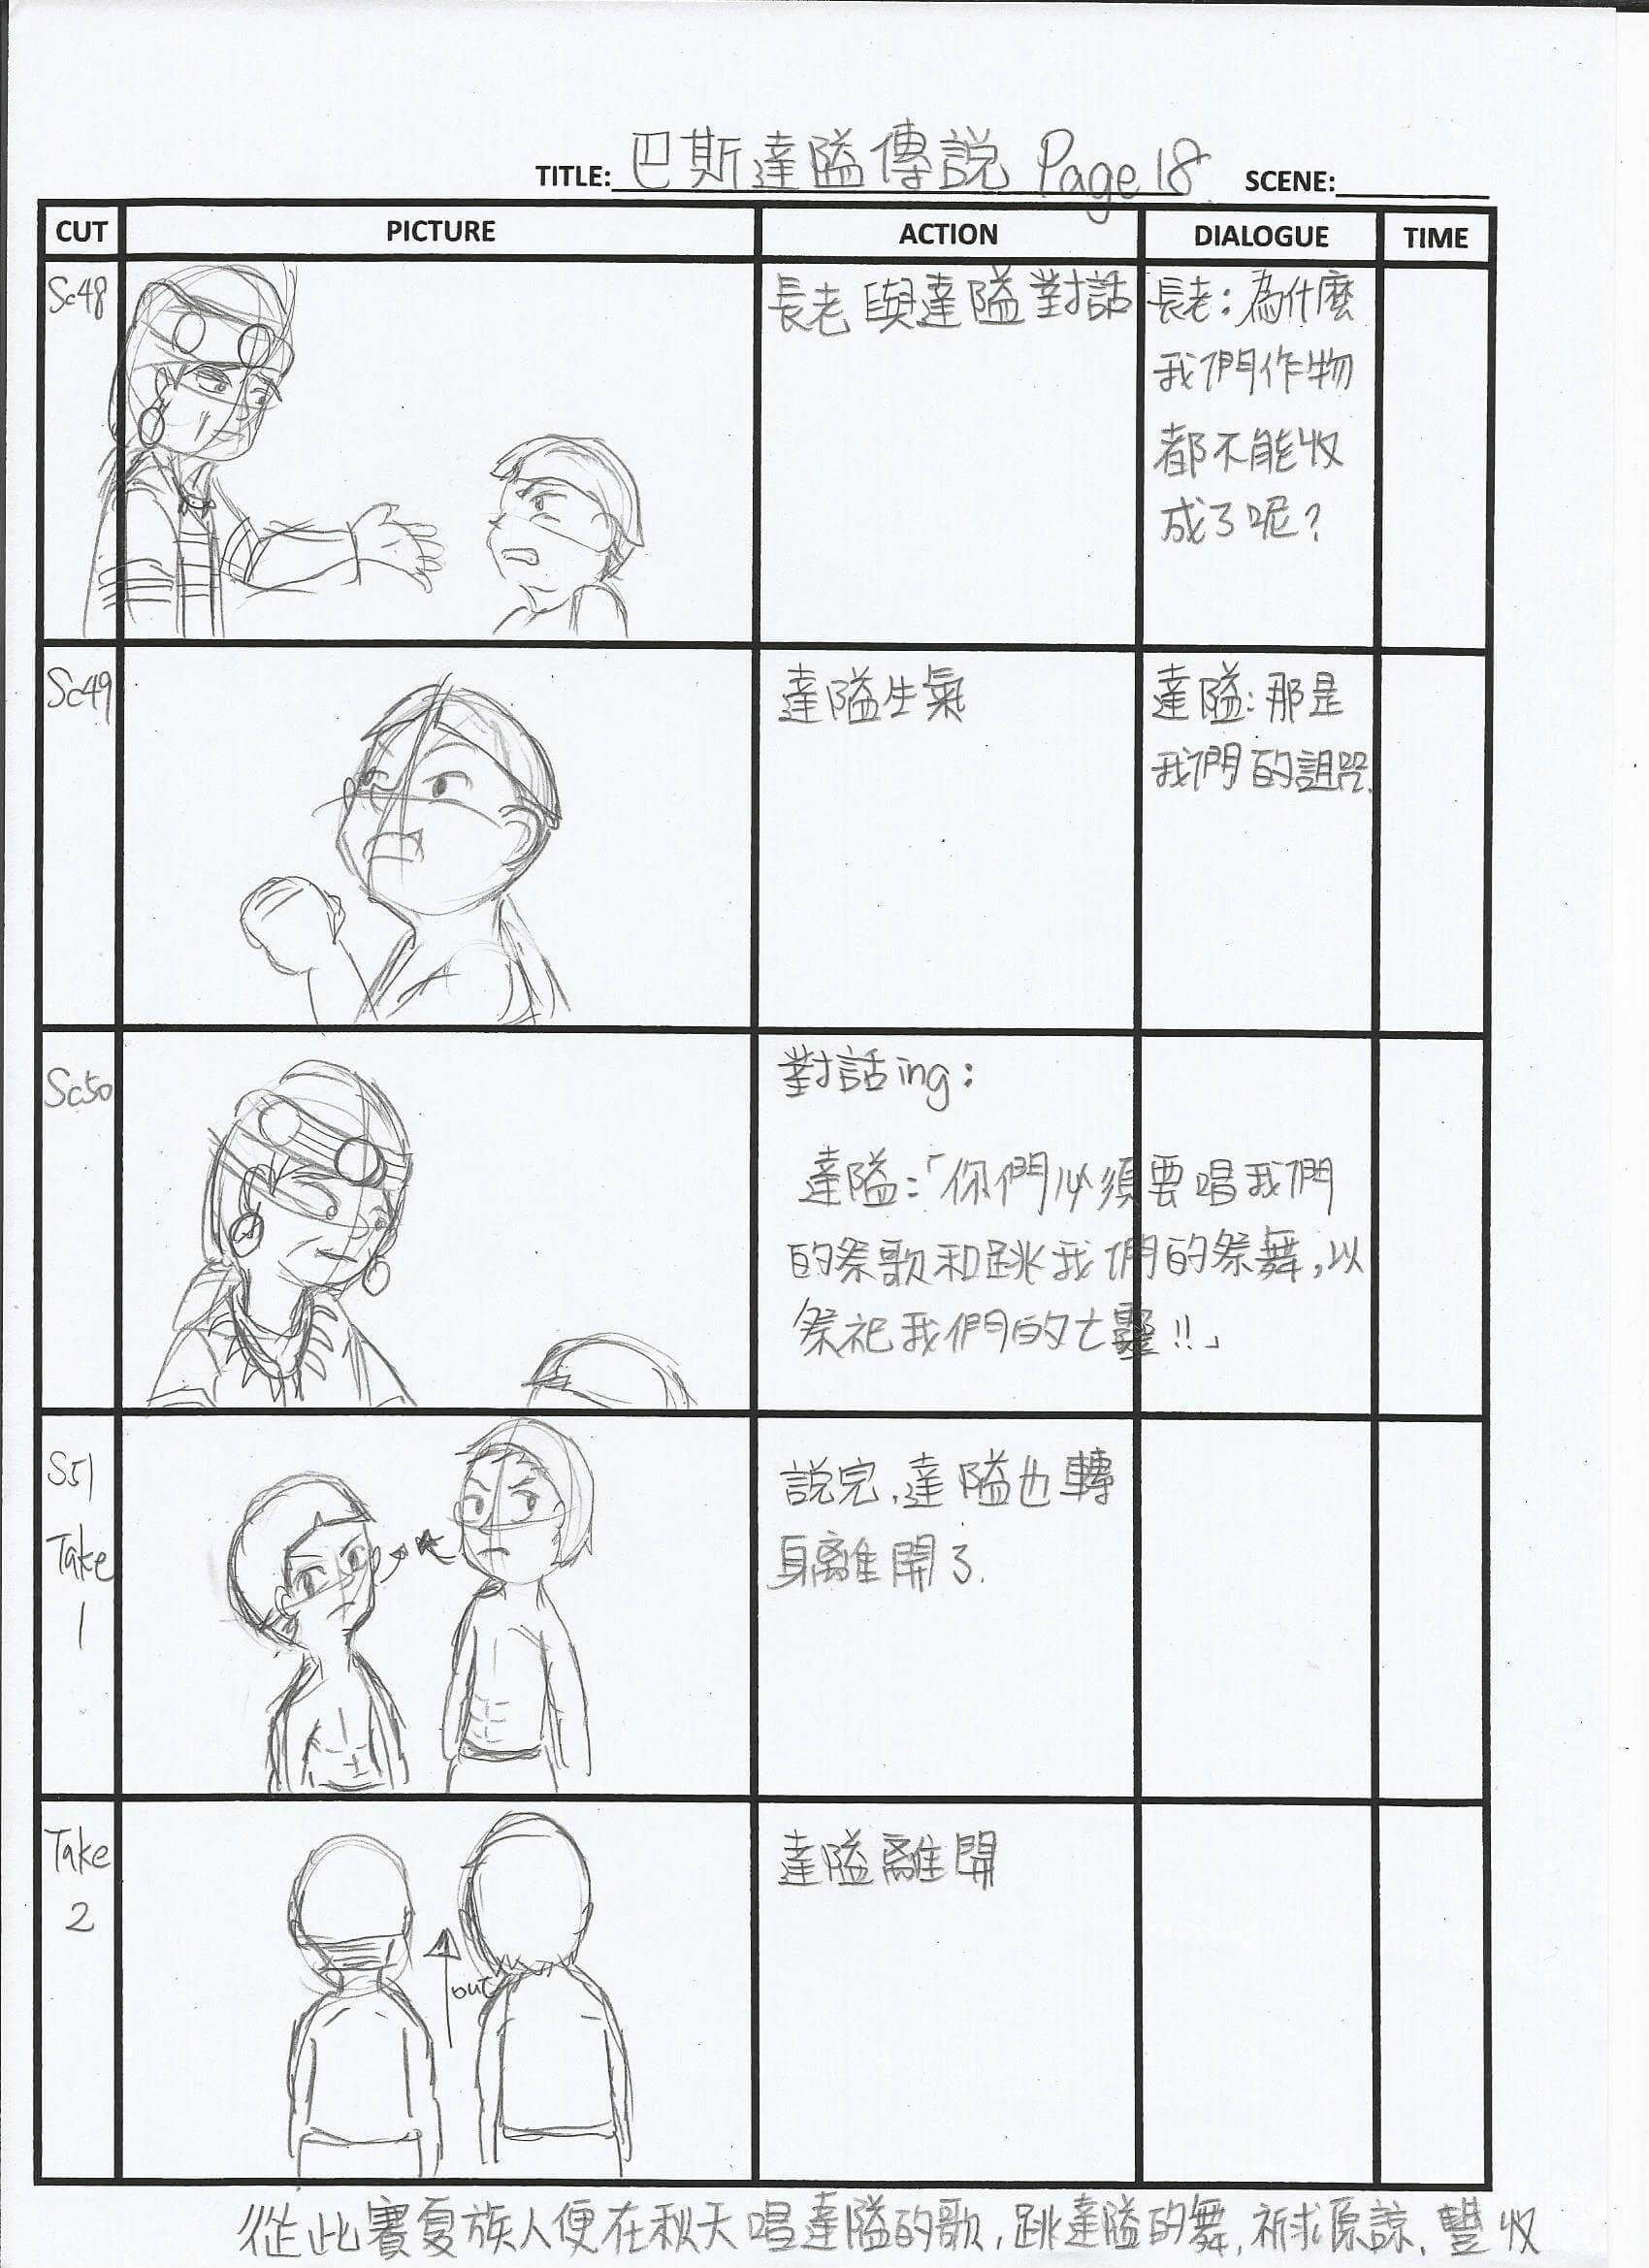 TITLE: 巴斯達隘傳説 Page 18 SCENE:
CUT PICTURE ACTION DIALOGUE TIME
Sc48
長老與達隘對話
長老:為什麼
我們作物
都不能收
成了呢?
Sc49
達隘生氣
達隘:那是
我們的詛咒.
Sc50
對話ing:
達隘:「你們必須要唱我們
的祭歌和跳我們的祭舞,以
祭祀我們的亡靈!!」
S51
Take
1
説完,達隘也轉
身離開了.
Take
2
out
達隘離開
從此賽夏族人便在秋天唱達隘的歌,跳達隘的舞,祈求原諒,豐收